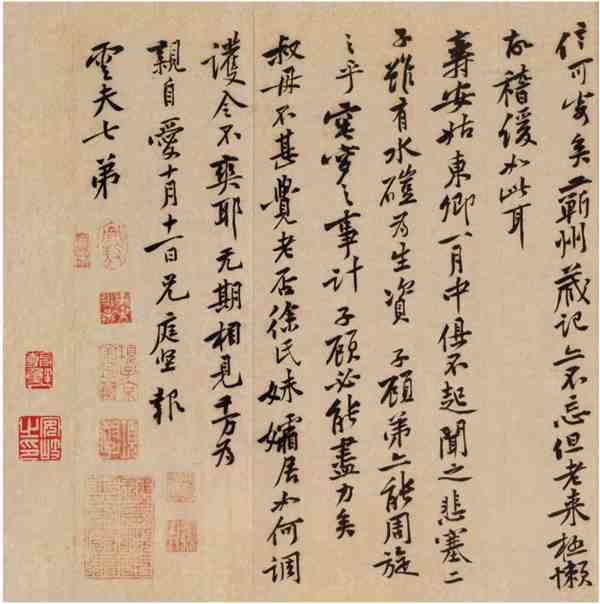 信可寄矣蘄州藏記亦不忘但老来極懶
故稽緩如此耳
壽安姑東卿一月中俱不起聞之悲塞二
子雖有水磑為生資子顧弟亦能周旋
之乎窀穸之事計子顧必能盡力矣
叔母不甚覺老否徐氏妹孀居如何調
護令不爽耶无期相見千万為
親自愛十月十一日兄庭堅報
雲夫七弟